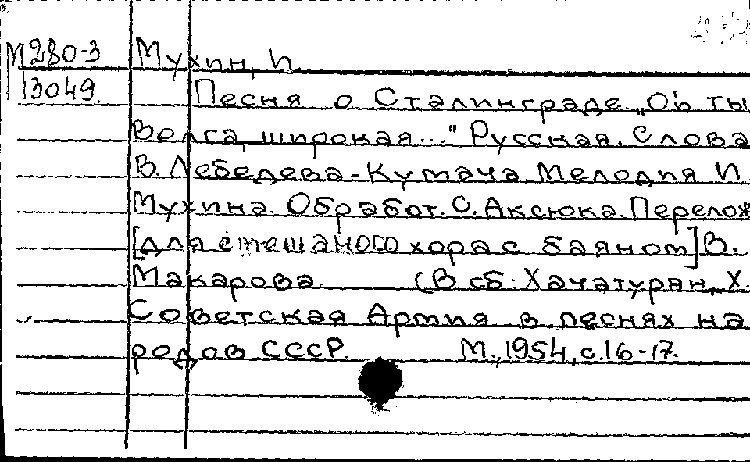 М280-3 Мухин, И.
13049 Песня о Сталинграде. „Ой ты
Волга, широкая..." Русская. Слова
В. Лебедева-Кумача. Мелодия И.
Мухина. Обработ. С. Аксюка. Перелож
[для смешаного хора с баяном] В.
Макарова (В сб: Хачатурян, Х.
Советская Армия в песнях на
родов СССР. М., 1954, с.16-17.